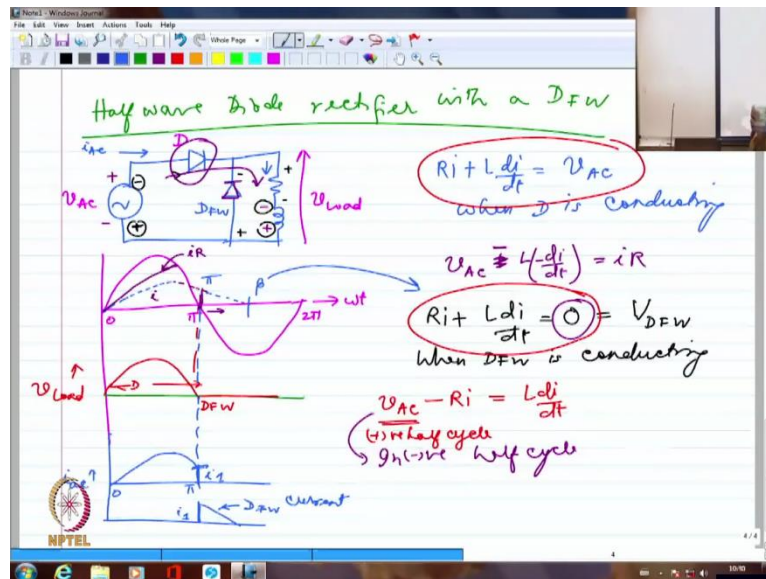 Note1 - Windows Journal
File Edit View Insert Actions Tools Help
Whole Page
B I
Half wave Diode rectifier with a DFW
iAC → D
+ - + vAC - + DFW - + + - - + vLoad
Ri + L di/dt = vAC
when D is conducting
iR
i π β → ωt
0 π 2π
vAC = L(-di/dt) = iR
Ri + L di/dt = 0 = VDFW
when DFW is conducting
vLoad ↑ D → DFW
vAC - Ri = L di/dt
(+)ve half cycle
In (-)ve half cycle
iac ↑ 0 π i1
i1 DFW current
NPTEL
4 / 4
4
10:10